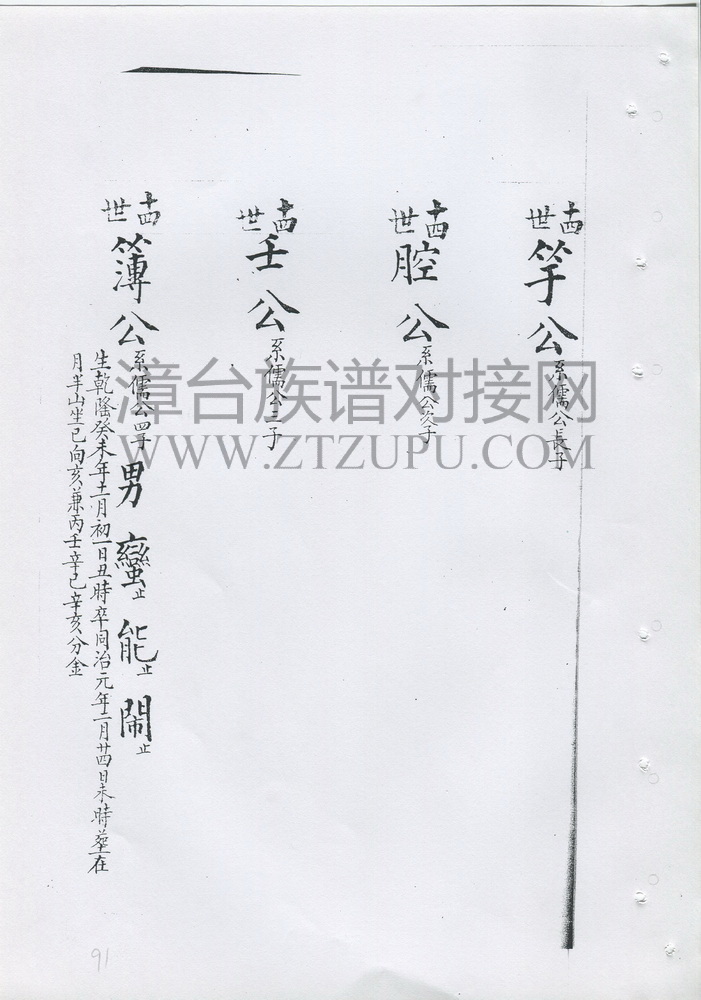 十四世 竽公 系儒公長子
十四世 腔公 系儒公次子
十四世 壬公 系儒公三子
十四世 簿公 系儒公四子 男 蠻止 能止 鬧止
生乾隆癸未年十二月初一日丑時卒同治元年二月廿四日未時葬在
月半山坐巳向亥兼丙壬辛巳辛亥分金
漳台族谱对接网
WWW.ZTZUPU.COM
91